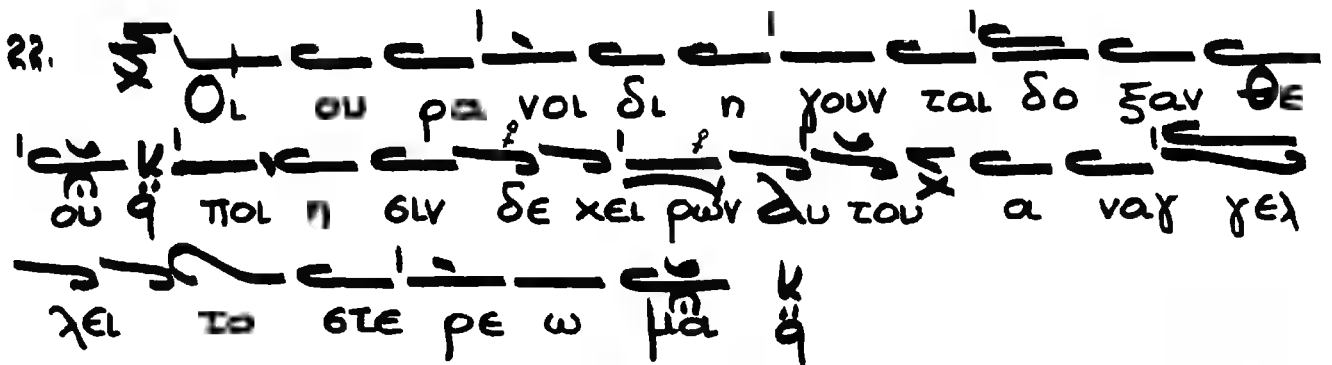 22. Οι ου ρα νοι δι η γουν ται δο ξαν Θε
ου ποι η σιν δε χει ρών αυ του α ναγ γελ
λει το στε ρε ω μα